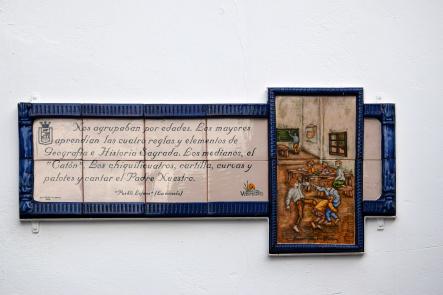 Nos agrupaban por edades. Los mayores
aprendían las cuatro reglas y elementos de
Geografía e Historia Sagrada. Los medianos, el
"Catón". Los chiquilicuatros, cartilla, curvas y
palotes y cantar el Padre Nuestro.
"Pueblo Lejano" (La escuela)